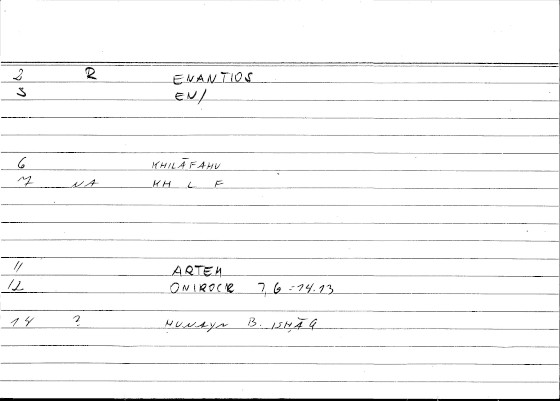 2 R ENANTIOS
3 EN/
6 KHILĀFAHU
7 NA KH L F
11 ARTEM
12 ONIROCR 7,6 = 14.13
14 ? HUNAYN B. ISHĀQ